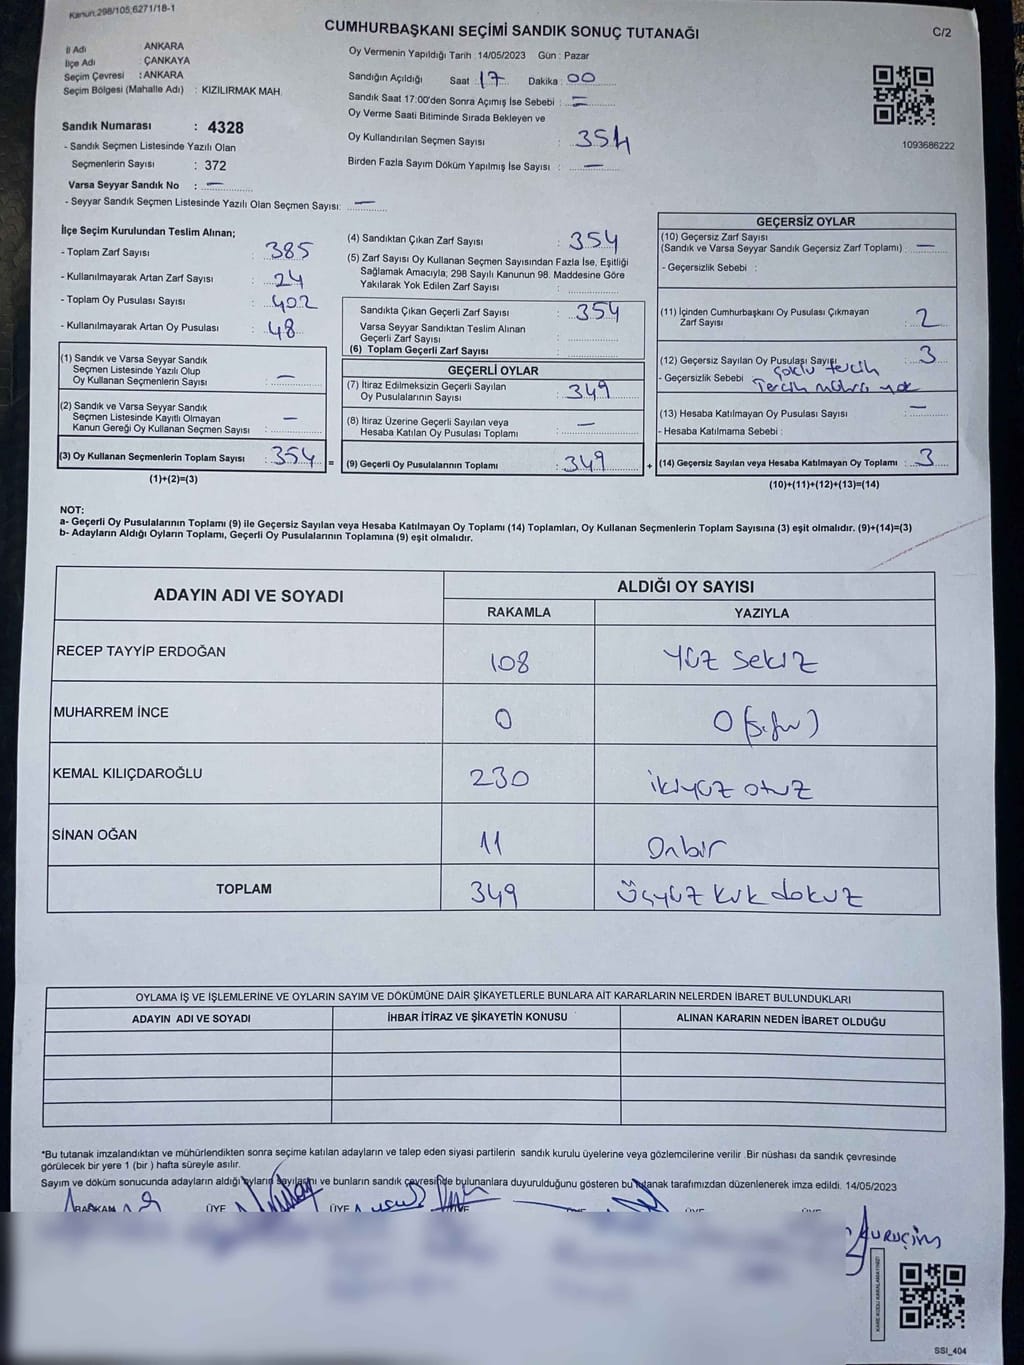 Kanun:298/105,6271/18-1
CUMHURBAŞKANI SEÇİMİ SANDIK SONUÇ TUTANAĞI
C/2
İl Adı ANKARA
İlçe Adı : ÇANKAYA
Seçim Çevresi : ANKARA
Seçim Bölgesi (Mahalle Adı) : KIZILIRMAK MAH.
Oy Vermenin Yapıldığı Tarih : 14/05/2023 Gün : Pazar
Sandığın Açıldığı Saat : 17 Dakika : 00
Sandık Saat 17:00'den Sonra Açımış İse Sebebi : —
Oy Verme Saati Bitiminde Sırada Bekleyen ve
Oy Kullandırılan Seçmen Sayısı : 354
Birden Fazla Sayım Döküm Yapılmış İse Sayısı : —
1093686222
Sandık Numarası : 4328
- Sandık Seçmen Listesinde Yazılı Olan
Seçmenlerin Sayısı : 372
Varsa Seyyar Sandık No : —
- Seyyar Sandık Seçmen Listesinde Yazılı Olan Seçmen Sayısı: —
İlçe Seçim Kurulundan Teslim Alınan;
- Toplam Zarf Sayısı : 385
- Kullanılmayarak Artan Zarf Sayısı : 24
- Toplam Oy Pusulası Sayısı : 402
- Kullanılmayarak Artan Oy Pusulası : 48
(1) Sandık ve Varsa Seyyar Sandık
Seçmen Listesinde Yazılı Olup
Oy Kullanan Seçmenlerin Sayısı : —
(2) Sandık ve Varsa Seyyar Sandık
Seçmen Listesinde Kayıtlı Olmayan
Kanun Gereği Oy Kullanan Seçmen Sayısı : —
(3) Oy Kullanan Seçmenlerin Toplam Sayısı : 354 =
(1)+(2)=(3)
(4) Sandıktan Çıkan Zarf Sayısı : 354
(5) Zarf Sayısı Oy Kullanan Seçmen Sayısından Fazla İse, Eşitliği
Sağlamak Amacıyla; 298 Sayılı Kanunun 98. Maddesine Göre
Yakılarak Yok Edilen Zarf Sayısı :
Sandıkta Çıkan Geçerli Zarf Sayısı : 354
Varsa Seyyar Sandıktan Teslim Alınan
Geçerli Zarf Sayısı :
(6) Toplam Geçerli Zarf Sayısı :
GEÇERLİ OYLAR
(7) İtiraz Edilmeksizin Geçerli Sayılan
Oy Pusulalarının Sayısı : 349
(8) İtiraz Üzerine Geçerli Sayılan veya
Hesaba Katılan Oy Pusulası Toplamı : —
(9) Geçerli Oy Pusulalarının Toplamı : 349 +
GEÇERSİZ OYLAR
(10) Geçersiz Zarf Sayısı
(Sandık ve Varsa Seyyar Sandık Geçersiz Zarf Toplamı) : —
- Geçersizlik Sebebi :
(11) İçinden Cumhurbaşkanı Oy Pusulası Çıkmayan
Zarf Sayısı : 2
(12) Geçersiz Sayılan Oy Pusulası Sayısı : 3
çoklu tercih
- Geçersizlik Sebebi Tercih mührü yok
(13) Hesaba Katılmayan Oy Pusulası Sayısı : —
- Hesaba Katılmama Sebebi :
(14) Geçersiz Sayılan veya Hesaba Katılmayan Oy Toplamı : 3
(10)+(11)+(12)+(13)=(14)
NOT:
a- Geçerli Oy Pusulalarının Toplamı (9) ile Geçersiz Sayılan veya Hesaba Katılmayan Oy Toplamı (14) Toplamları, Oy Kullanan Seçmenlerin Toplam Sayısına (3) eşit olmalıdır. (9)+(14)=(3)
b- Adayların Aldığı Oyların Toplamı, Geçerli Oy Pusulalarının Toplamına (9) eşit olmalıdır.
ADAYIN ADI VE SOYADI ALDIĞI OY SAYISI
RAKAMLA YAZIYLA
RECEP TAYYİP ERDOĞAN 108 Yüz sekiz
MUHARREM İNCE 0 0 (sıfır)
KEMAL KILIÇDAROĞLU 230 ikiyüz otuz
SİNAN OĞAN 11 Onbir
TOPLAM 349 Üçyüz kırk dokuz
OYLAMA İŞ VE İŞLEMLERİNE VE OYLARIN SAYIM VE DÖKÜMÜNE DAİR ŞİKAYETLERLE BUNLARA AİT KARARLARIN NELERDEN İBARET BULUNDUKLARI
ADAYIN ADI VE SOYADI İHBAR İTİRAZ VE ŞİKAYETİN KONUSU ALINAN KARARIN NEDEN İBARET OLDUĞU
*Bu tutanak imzalandıktan ve mühürlendikten sonra seçime katılan adayların ve talep eden siyasi partilerin sandık kurulu üyelerine veya gözlemcilerine verilir .Bir nüshası da sandık çevresinde
görülecek bir yere 1 (bir ) hafta süreyle asılır.
Sayım ve döküm sonucunda adayların aldığı oyların sayılarını ve bunların sandık çevresinde bulunanlara duyurulduğunu gösteren bu tutanak tarafımızdan düzenlenerek imza edildi. 14/05/2023
BAŞKAN ÜYE ÜYE ÜYE ÜYE ÜYE
KARE KODU KARALAMAYINIZ!
SSI_404